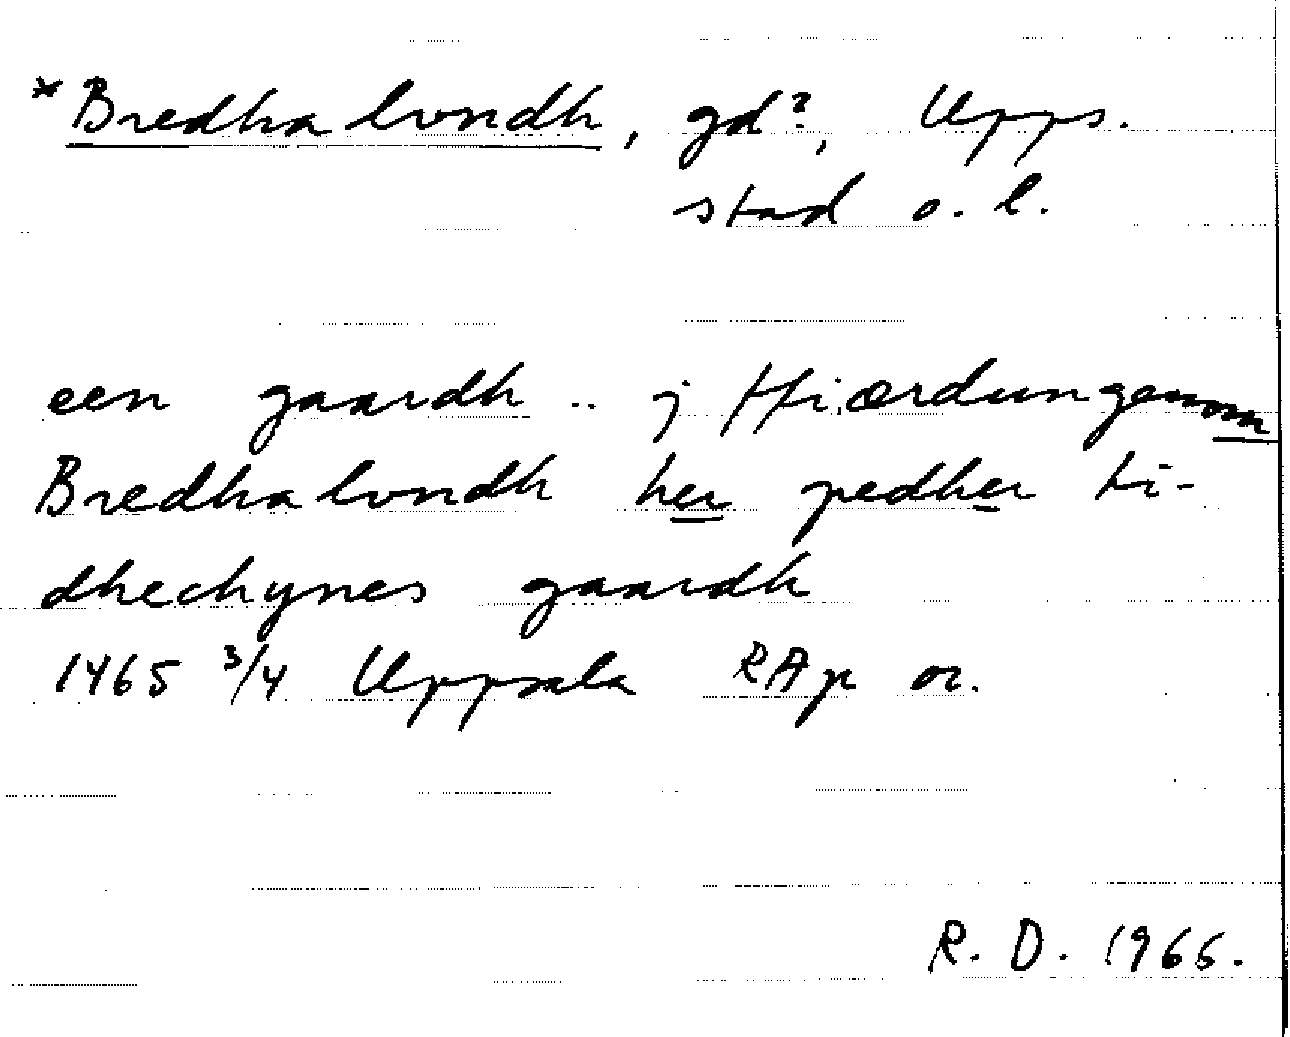 *Bredha lvndh, gd?, Upps.
stad o. l.
een gaardh .. j ffiærdungenom
Bredha lvndh her pedher ti-
dhechynes gaardh
1465 3/4 Uppsala RAp or.
R. D. 1966.